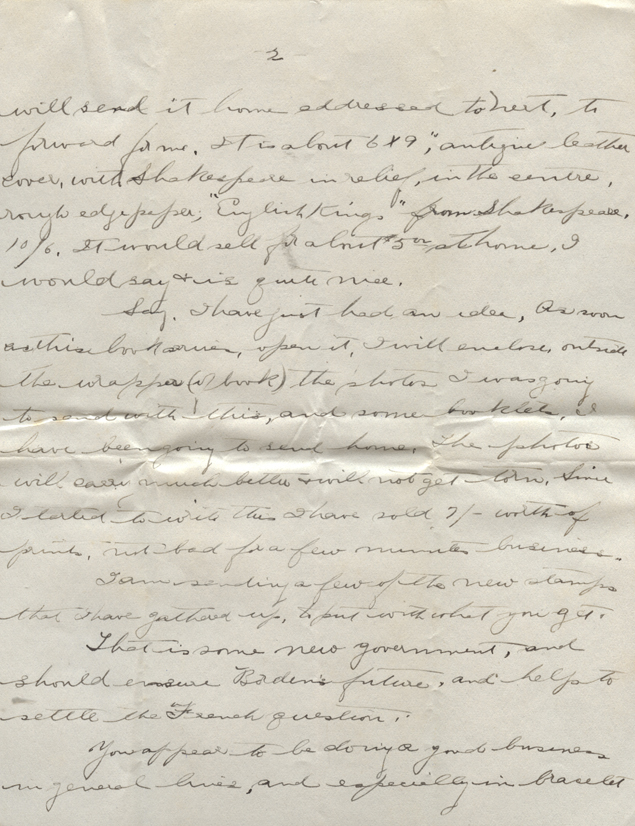 -2-
will send it home addressed to Gert, to
forward for me. It is about 6x9", antique leather
cover, with Shakespeare in relief, in the centre,
rough edge paper, "English Kings" from Shakespeare.
10/6. It would sell for about $5.00 at home, I
would say & is quite nice.
Say. I have just had an idea, as soon
as this book arrives, open it, I will enclose, outside
the wrapper (of book) the photos I was going
to send with this, and some booklets, I
have been going to send home. The photos
will carry much better & will not get torn, Since
I started to write this I have sold 7/- worth of
prints, not bad for a few minutes business.
I am sending a few of the new stamps
that I have gathered up, to put with what you get.
That is some new government, and
should ensure Borden's future, and helps to
settle the French question.
You appear to be doing a good business
in general lines, and especially in bracelet